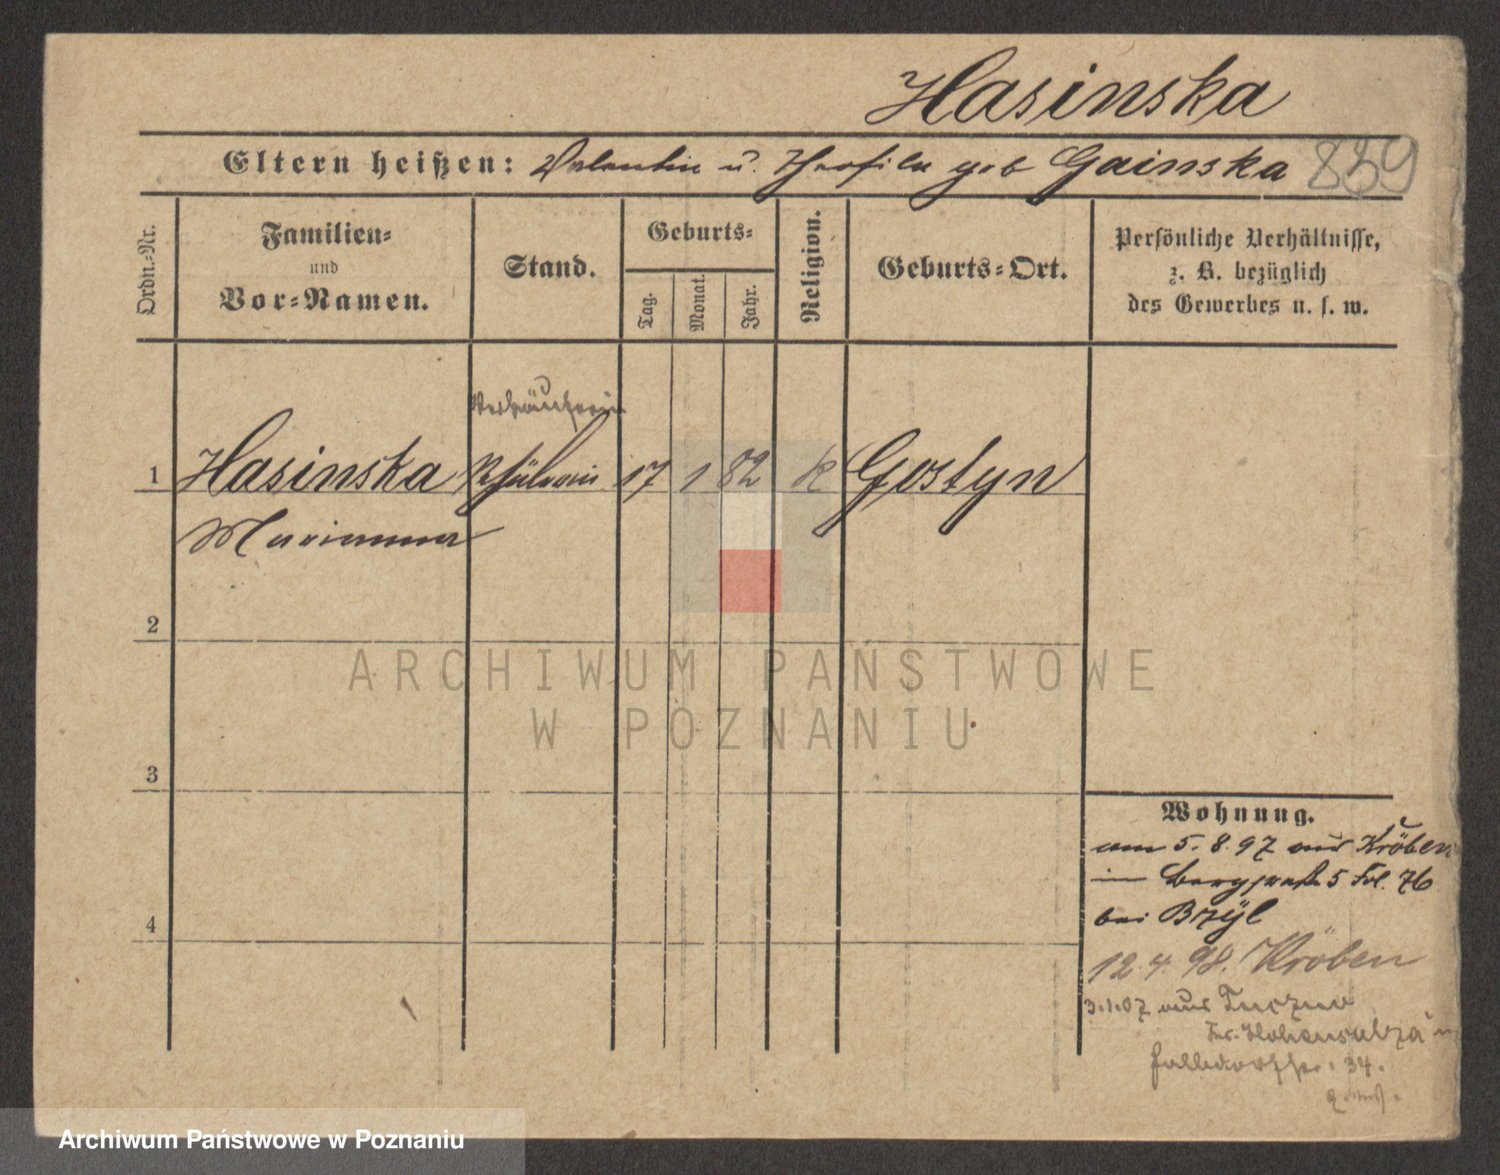 Hasinska
Eltern heißen: Valentin u. Theofila geb Gainska 839
Ordn.-Nr.
Familien-
und
Vor-Namen.
Stand.
Geburts-
Tag.
Monat.
Jahr.
Religion.
Geburts-Ort.
Persönliche Verhältnisse,
z. B. bezüglich
des Gewerbes u. s. w.
Verkäuferin
1 Hasinska 17 1 82 K Gostyn
Marianna
2
3
4
Wohnung.
am 5. 8. 97 aus Kröben
in 5 76
bei Bzyl
12 4 98. Kröben
3.1.07 aus
Hohensalza in
34.
ARCHIWUM PAŃSTWOWE
W POZNANIU
Archiwum Państwowe w Poznaniu